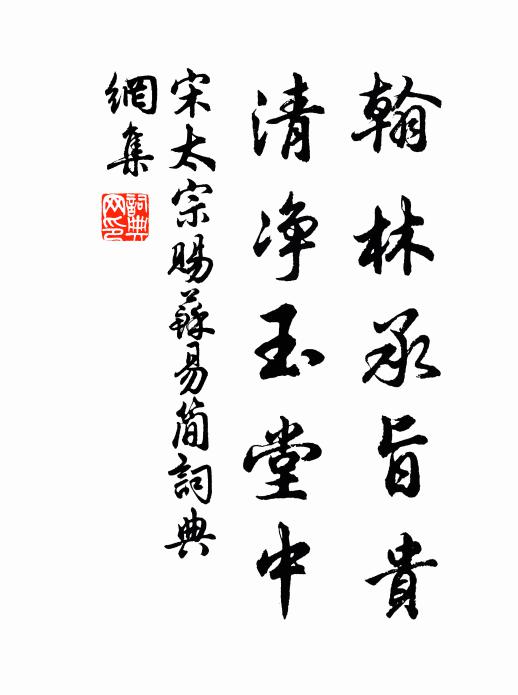 翰林承旨貴
清淨玉堂中
宋太宗賜蘇易簡詞典
網集
詞典網印